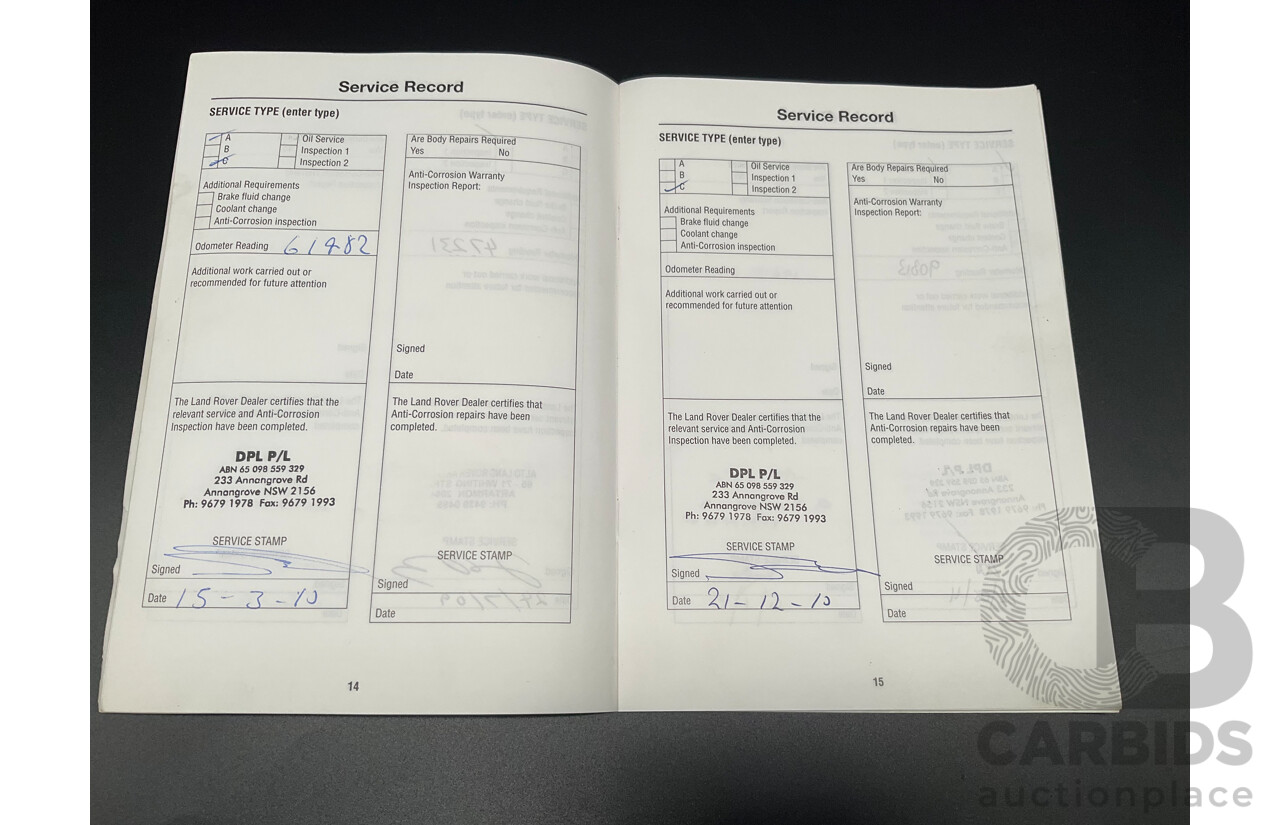 Service Record
SERVICE TYPE (enter type)
A
B
C
Oil Service
Inspection 1
Inspection 2
Additional Requirements
Brake fluid change
Coolant change
Anti-Corrosion inspection
Odometer Reading 61482
Additional work carried out or
recommended for future attention
The Land Rover Dealer certifies that the
relevant service and Anti-Corrosion
Inspection have been completed.
DPL P/L
ABN 65 098 559 329
233 Annangrove Rd
Annangrove NSW 2156
Ph: 9679 1978 Fax: 9679 1993
SERVICE STAMP
Signed
Date 15-3-10
Are Body Repairs Required
Yes No
Anti-Corrosion Warranty
Inspection Report:
Signed
Date
The Land Rover Dealer certifies that
Anti-Corrosion repairs have been
completed.
SERVICE STAMP
Signed
Date
14
Service Record
SERVICE TYPE (enter type)
A
B
C
Oil Service
Inspection 1
Inspection 2
Additional Requirements
Brake fluid change
Coolant change
Anti-Corrosion inspection
Odometer Reading
Additional work carried out or
recommended for future attention
The Land Rover Dealer certifies that the
relevant service and Anti-Corrosion
Inspection have been completed.
DPL P/L
ABN 65 098 559 329
233 Annangrove Rd
Annangrove NSW 2156
Ph: 9679 1978 Fax: 9679 1993
SERVICE STAMP
Signed
Date 21-12-10
Are Body Repairs Required
Yes No
Anti-Corrosion Warranty
Inspection Report:
Signed
Date
The Land Rover Dealer certifies that
Anti-Corrosion repairs have been
completed.
SERVICE STAMP
Signed
Date
15
CARBIDS
auctionplace